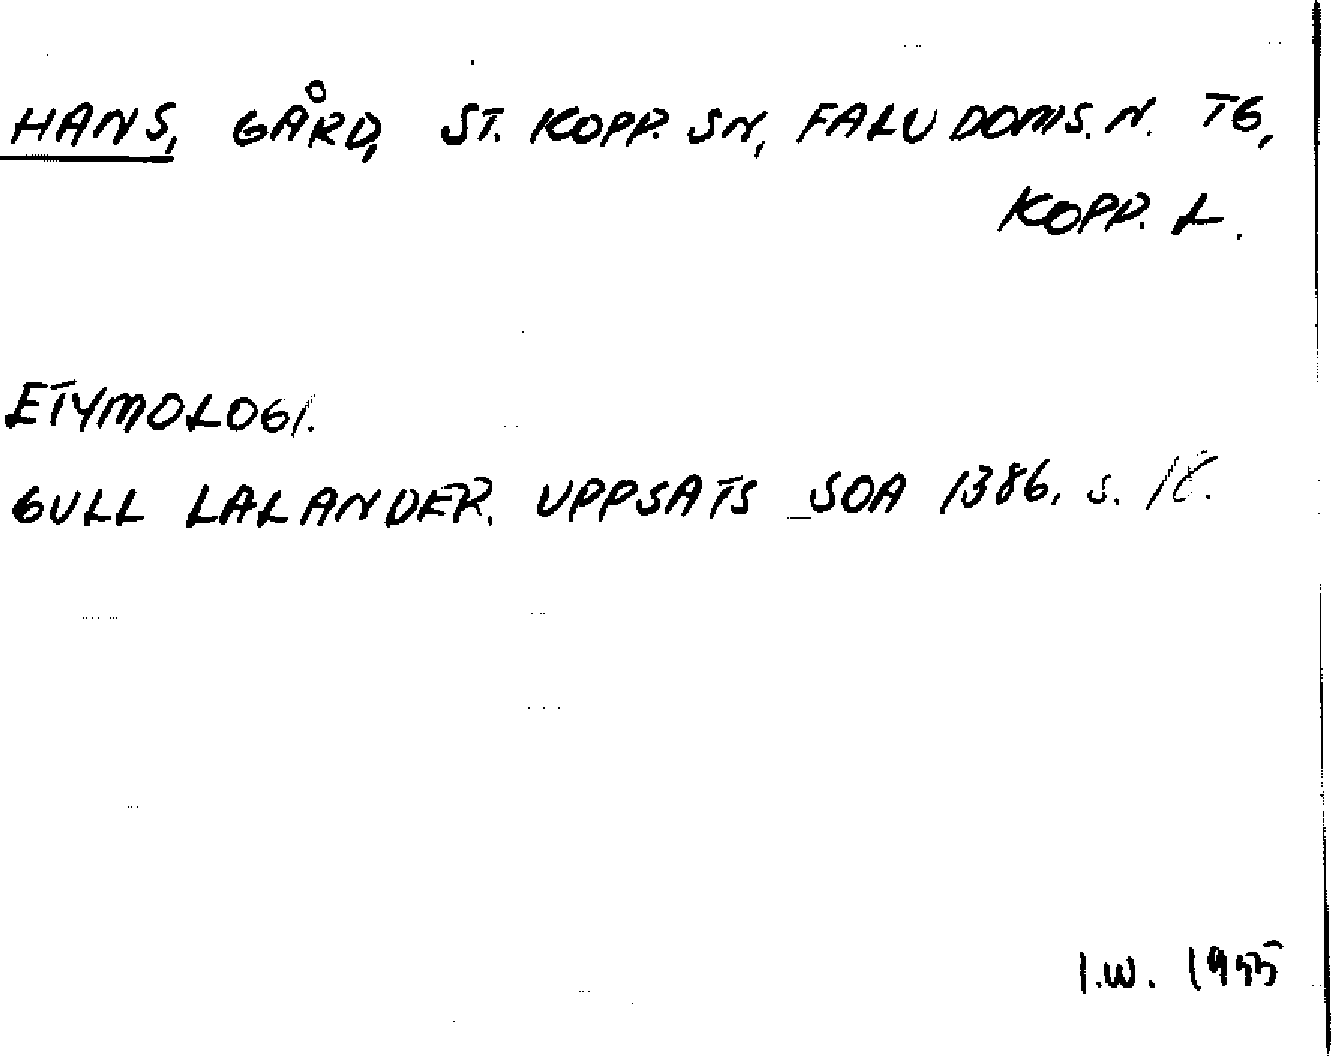 HANS, GÅRD, ST. KOPP. SN, FALU DOMS. N. TG,
KOPP. L.
ETYMOLOGI.
GULL LALANDER. UPPSATS SOA 1386, s.
I.W. 1955